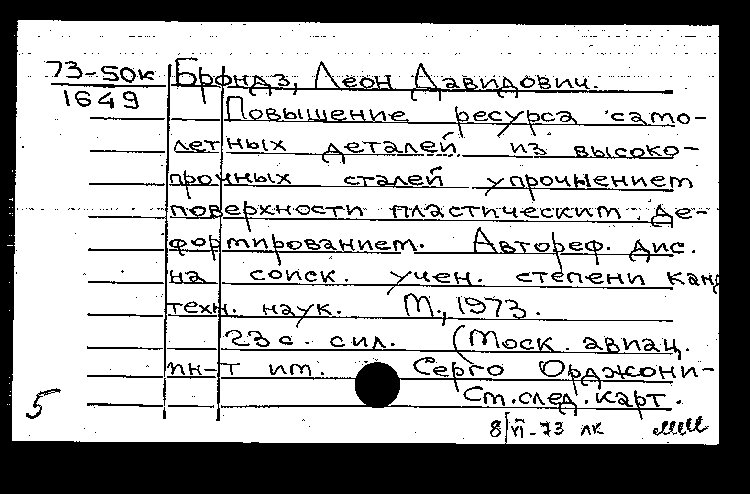 73-50к Брондз, Леон Давидович.
1649
Повышение ресурса само-
летных деталей из высоко-
прочных сталей упрочнением
поверхности пластическим де-
формированием. Автореф. дис.
на соиск. учен. степени канд
техн. наук. М., 1973.
23 с. с ил. (Моск. авиац.
ин-т им. Серго Орджони-
5 См. след. карт.
8/VI-73 лк